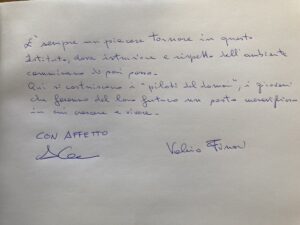 È sempre un piacere tornare in questo
Istituto, dove istruzione e rispetto dell'ambiente
camminano di pari passo.
Qui si costruiscono i "piloti del domani", i giovani
che faranno del loro futuro un posto meraviglioso
in cui crescere e vivere.
CON AFFETTO
Valerio